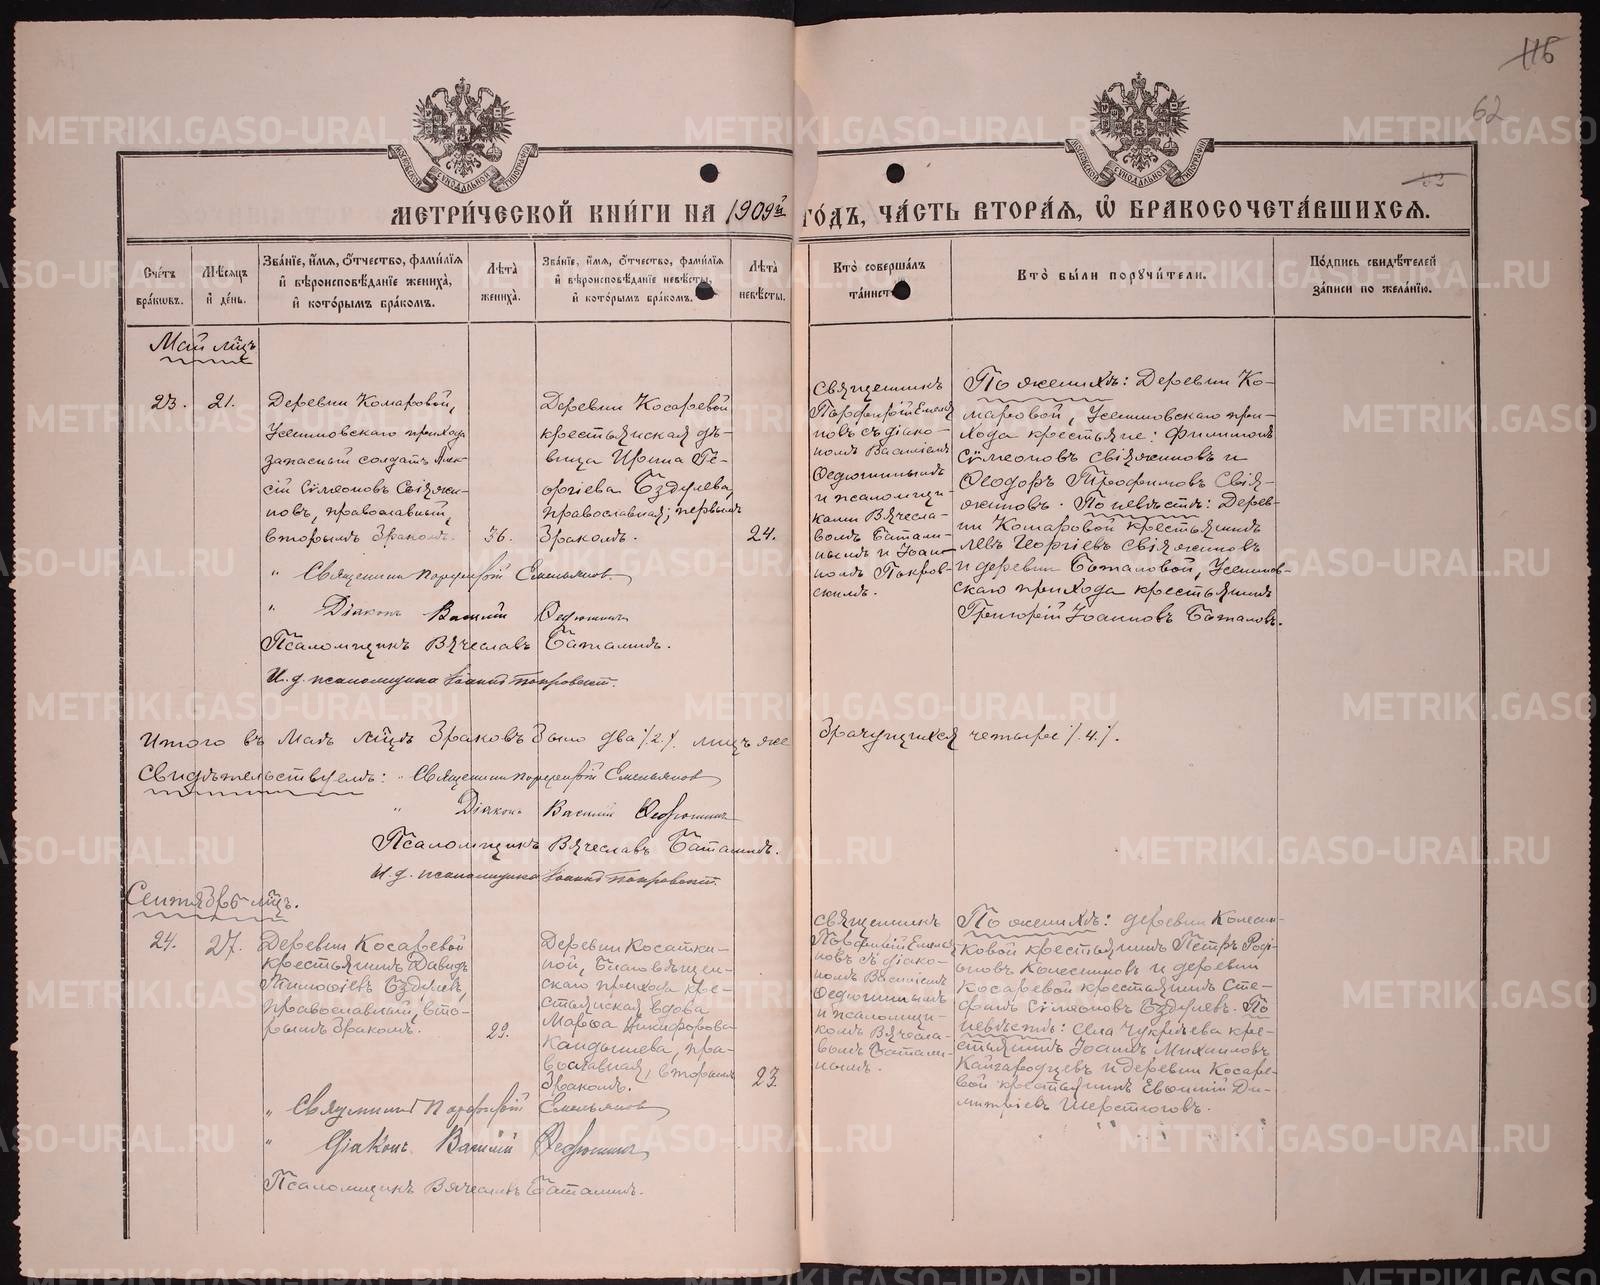 115
62
МОСКОВСКОЙ СѴНОДАЛЬНОЙ ТИПОГРАФІИ
МОСКОВСКОЙ СѴНОДАЛЬНОЙ ТИПОГРАФІИ
МЕТРИЧЕСКОЙ КНИГИ НА 1909й ГОДЪ, ЧАСТЬ ВТОРАЯ, Ѡ БРАКОСОЧЕТАВШИХСЯ.
Счетъ браковъ.
Мѣсяцъ и день.
Званіе, имя, отчество, фамилія
и вѣроисповѣданіе жениха,
и которымъ бракомъ.
Лѣта жениха.
Званіе, имя, отчество, фамилія
и вѣроисповѣданіе невѣсты,
и которымъ бракомъ.
Лѣта невѣсты.
Кто совершалъ
таинст
Кто были поручители.
Подпись свидѣтелей
записи по желанію.
Май м̃цъ
23.
21.
Деревни Комаровой,
Усениновскаго прихода
запасный солдатъ Алек-
сій Сѵмеоновъ Свіяжени-
новъ, православный,
вторымъ бракомъ.
36.
Деревни Косаревой
крестьянская дѣ-
вица Ирина Ге-
оргіева Бздулева,
православная; первымъ
бракомъ.
24.
Священникъ
Порфирій Емелья
новъ съ діако-
номъ Василіемъ
Ѳедюшинымъ
и псаломщи-
ками Вячесла-
вомъ Батали-
нымъ и Іоан-
номъ Покров-
скимъ.
По женихѣ: Деревни Ко-
маровой, Усениновскаго при-
хода крестьяне: Филимонъ
Сѵмеоновъ Свіяжениновъ и
Ѳеодоръ Трофимовъ Свія-
жениновъ. По невѣстѣ: Дерев-
ни Комаровой крестьянинъ
Левъ Георгіевъ Свіяжениновъ
и деревни Боталовой, Усенинов-
скаго прихода крестьянинъ
Григорій Іоанновъ Боталовъ.
" Священникъ Порфирій Емельяновъ
" Діаконъ Василій Ѳедюшинъ
Псаломщикъ Вячеславъ Баталинъ.
И. д. псаломщика Іоаннъ Покровскій.
Итого въ Маѣ м̃цѣ браковъ было два /2/. лицъ же брачущихся четыре /.4./.
Свидѣтельствуемъ: " Священникъ Порфирій Емельяновъ
" Діаконъ Василій Ѳедюшинъ
Псаломщикъ Вячеславъ Баталинъ.
И. д. псаломщика Іоаннъ Покровскій.
Сентябрь м̃цъ.
24.
27.
Деревни Косаревой
крестьянинъ Давидъ
Тимоѳіевъ Бздулевъ,
православный, вто-
рымъ бракомъ.
29.
Деревни Косатки-
ной, Благовѣщен-
скаго прихода кре-
стьянская вдова
Марѳа Никифорова
Кандышева, пра-
вославная, вторымъ
бракомъ.
23.
Священникъ
Порфирій Емелья
новъ съ діако-
номъ Василіемъ
Ѳедюшинымъ
и псаломщи-
комъ Вячесла-
вомъ Батали-
нымъ.
По женихѣ: деревни Колесни-
ковой крестьянинъ Петръ Роді-
оновъ Колесниковъ и деревни
Косаревой крестьянинъ Сте-
фанъ Сѵмеоновъ Бздулевъ. По
невѣстѣ: Села Чукрѣева кре-
стьянинъ Іоаннъ Михаиловъ
Кайгародцевъ и деревни Косаре-
вой крестьянинъ Евѳимій Ди-
митріевъ Шерстоговъ.
" Священникъ Порфирій Емельяновъ
" Діаконъ Василій Ѳедюшинъ
Псаломщикъ Вячеславъ Баталинъ.
METRIKI.GASO-URAL.RU